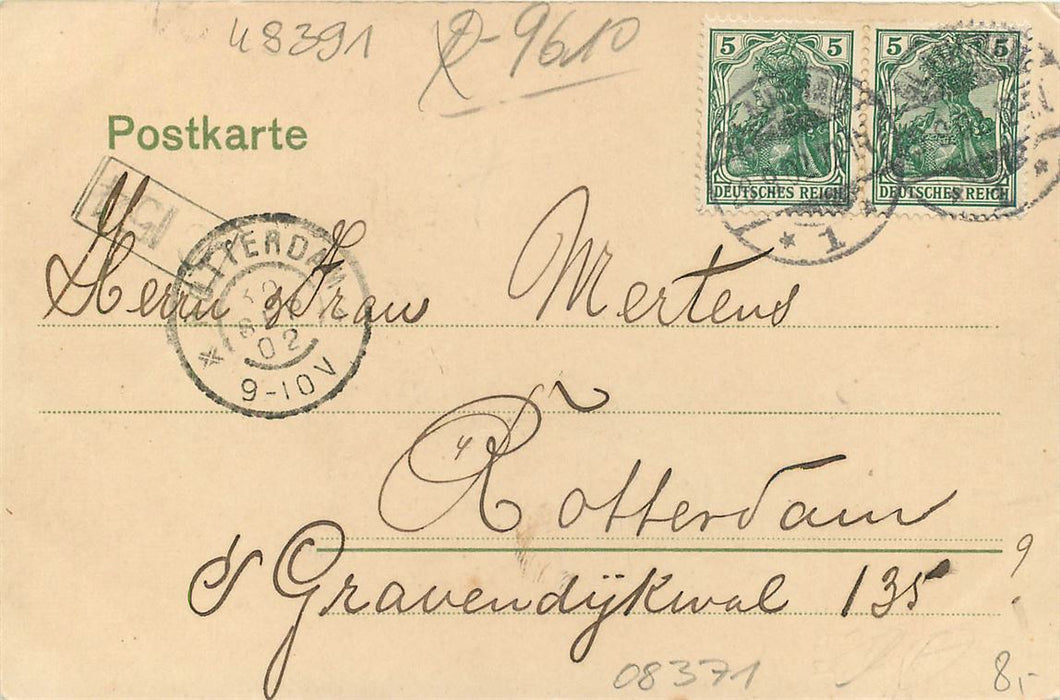 48391
9610
5 5
Postkarte
DEUTSCHES REICH DEUTSCHES REICH
1
ROTTERDAM
SEP
02
9-10V
Herrn & Frau Mertens
Rotterdam
's Gravendijkwal 135 ?
08371
8,-